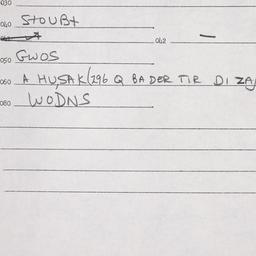 030
040 STOUBT
042 —
050 GWOS
060 A HUSAK(296 Q BA DER TIR DI ZA
080 WODNS